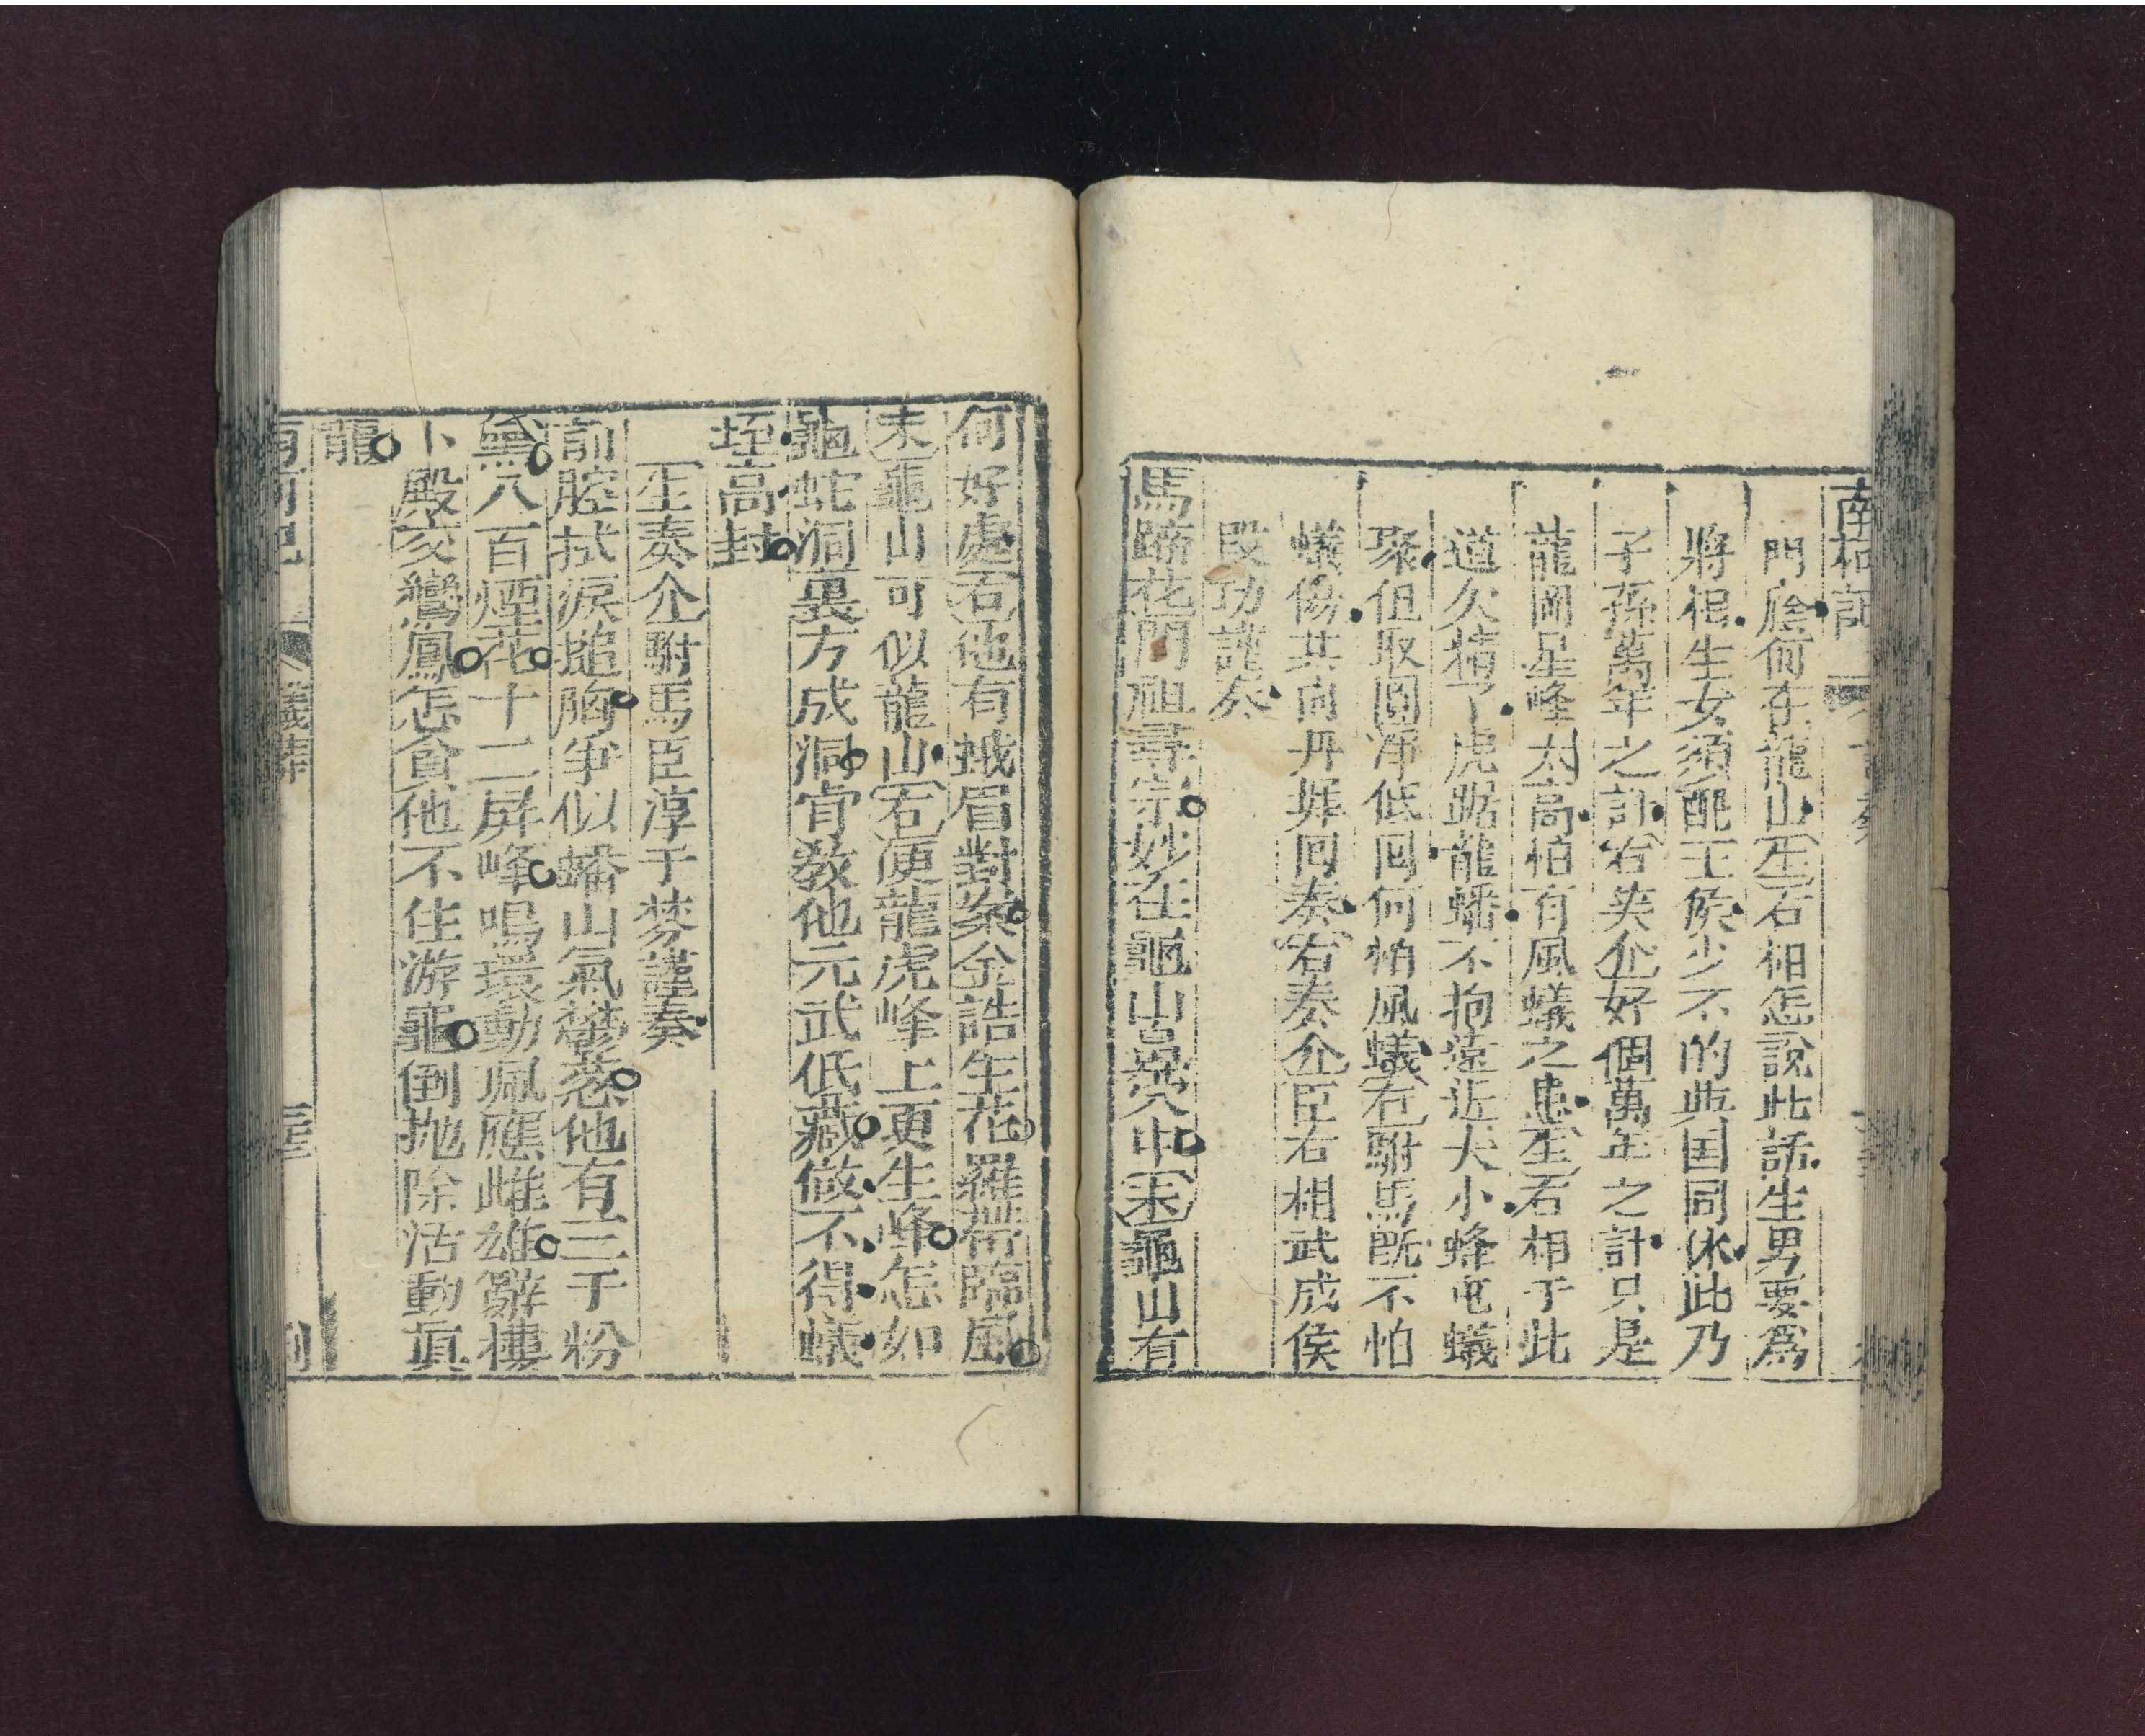 南柯記
門廕何在龍山生右相怎說此話生男要爲
將相生女須配王侯少不的與国同休此乃
子孫萬年之計右笑介好個萬年之計只是
龍岡星峰太高怕有風蟻之患生右相于此
道欠精了虎踞龍蟠不拘遠近大小蜂屯蟻
聚但取圓淨低回何怕風蟻右駙馬既不怕
蟻傷其向丹墀回奏右奏介臣右相武成侯
段功謹奏
馬蹄花門祖尋宗妙在龜山穴中末龜山有
何好處右他有蛾眉對案金誥生花羅帶臨風
末龜山可似龍山右便龍虎峰上更生峰怎如
龜蛇洞裏方成洞肯教他元武低藏做不得蟻
垤高封
生奏介駙馬臣淳于棼謹奏
前腔拭淚搥胸爭似蟠山氣欝葱他有三千粉
黛八百煙花十二屏峰鳴環動珮應雌雄辭樓
下殿交鸞鳳怎貪他不住游龜倒抛除活動眞
龍